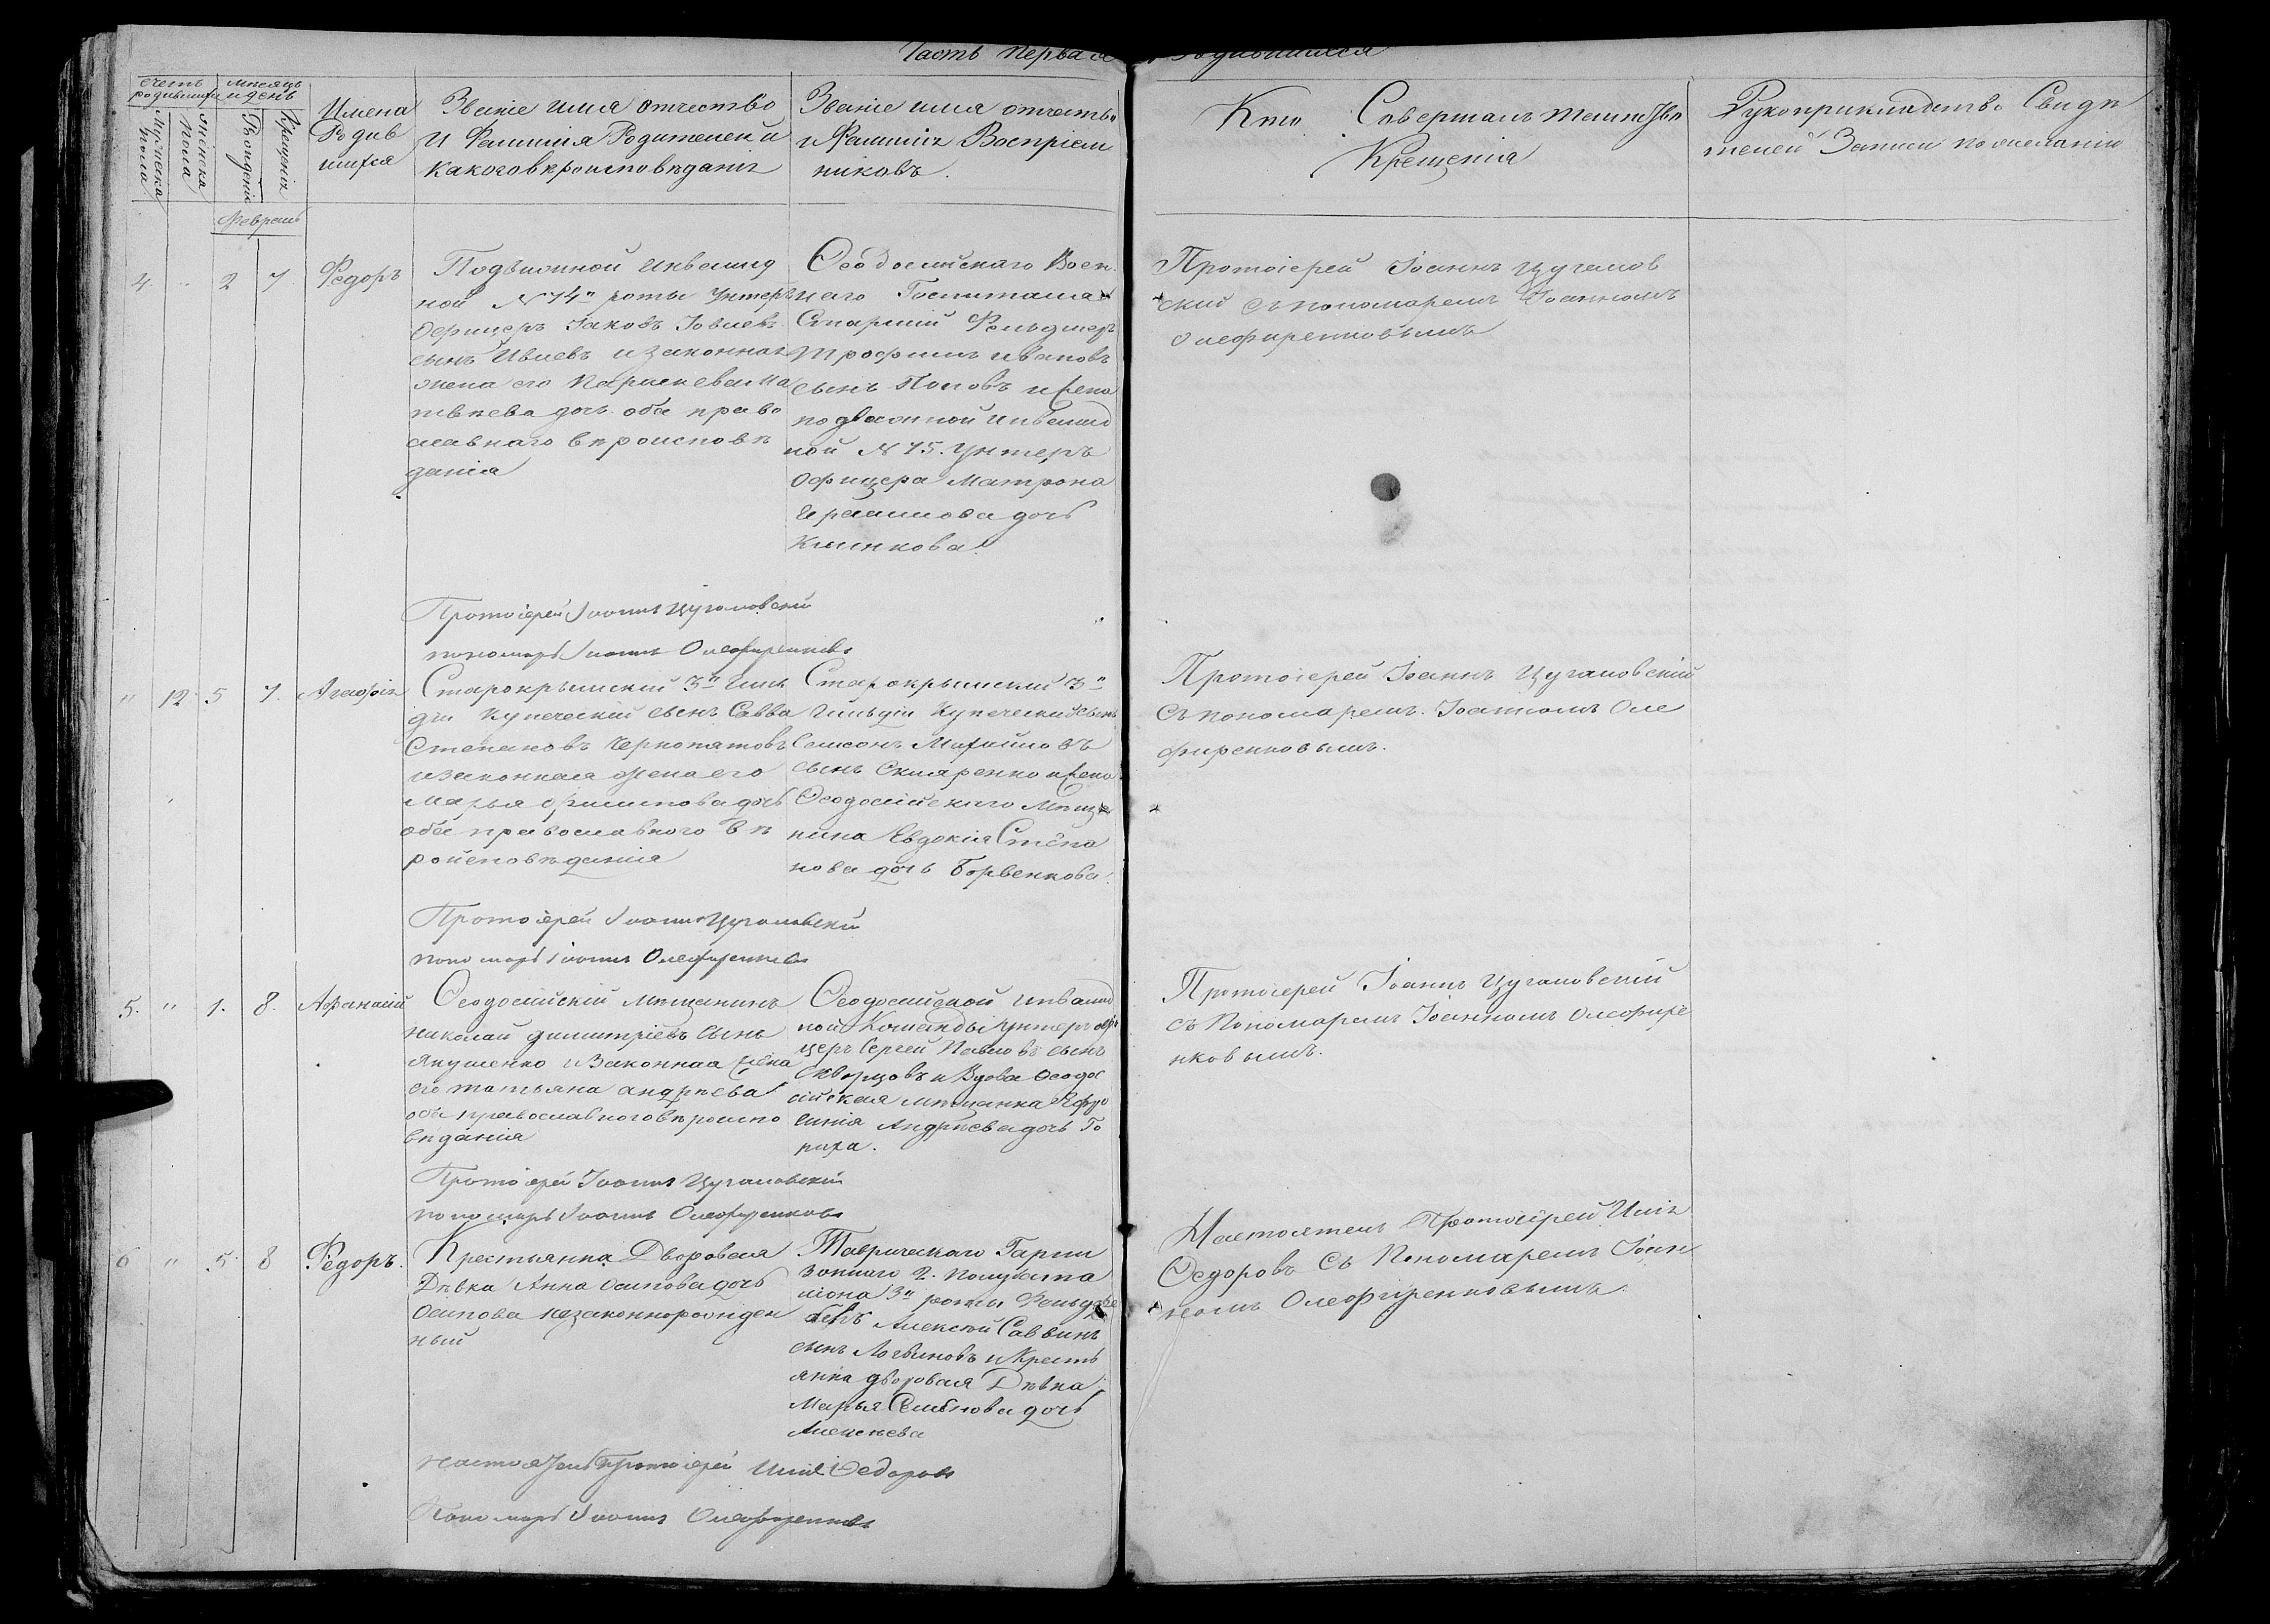 Часть Первая о Родившихся
Счетъ родившихся
Мѣсяцъ и день
Имена Родившихся
Званіе имя отчество
и Фамилія Родителей и
какого вѣроисповѣданія
Званіе имя отчество
и Фамилія Воспріем
никовъ.
Кто Совершалъ таинство
Крещенія
Рукоприкладство Свидѣ
телей Записи по желанію
Мужеска пола
Женска пола
Рожденія
Крещенія
Февраль
4 " 2 7 Федоръ
Подвижной инвалид
ной № 14" роты Унтеръ
Офицеръ Іаковъ Іовлевъ
сынъ Ивлевъ и законная
жена его Параскева Ма
твѣева дочь оба право
славнаго вѣроисповѣ
данія
Ѳеодосійскаго Воен
наго Госпиталя
Старшій Фельдшеръ
Трофимъ Ивановъ
сынъ Поповъ и жена
подвижной инвалид
ной № 15. Унтеръ
Офицера Матрона
дочь
Климкова
Протоіерей Іоаннъ Цугаловскій
съ пономаремъ Іоанномъ
Олефиренковымъ
Протоіерей Іоаннъ Цугаловскій
пономарь Іоаннъ Олефиренковъ
" 12 5 7. Агафія
Старокрымскій 3й гиль
діи Купеческій сынъ Савва
Степановъ Чернопятовъ
и законная жена его
Марья Филипова дочь
оба православного вѣ
роисповѣданія
Старокрымскій 3й
гильдіи Купеческій сынъ
Самсонъ Михайловъ
сынъ Скляренко и жена
Ѳеодосійскаго Мѣща
нина Евдокія Степа
нова дочь Борвенкова.
Протоіерей Іоаннъ Цугаловскій
съ пономаремъ Іоанномъ Оле
фиренковымъ.
Протоіерей Іоаннъ Цугаловскій
пономарь Іоаннъ Олефиренковъ
5. " 1. 8. Афанасій
Ѳеодосійскій мѣщанинъ
николай димитріевъ сынъ
Якушенко и Законная жена
его татьяна андрѣева
оба православного вѣроиспо
вѣданія
Ѳеодосійской инвалид
ной Команды унтеръ офи
церъ Сергей Павловъ сынъ
Скворцовъ и Вдова Ѳеодос
ійская мѣщанка Ефро
синія Андрѣева дочь Го
раха.
Протоіерей Іоаннъ Цугаловскій
съ Пономаремъ Іоанномъ Олефире
нковымъ.
Протоіерей Іоаннъ Цугаловскій
пономарь Іоаннъ Олефиренковъ
6 " 5. 8 Федоръ.
Крестьянка Дворовая
Дѣвка Анна Осипова дочь
Осипова незаконнорожден
ный
Таврическаго Гарни
зоннаго 2. полубата
ліона 3й роты Фельдше
Алексѣй Саввинъ
сынъ Логвиновъ и Кресть
янка дворовая Дѣвка
Марья Семёнова дочь
Алексѣева
Настоятель Протоіерей Илія
Ѳедоровъ съ Пономаремъ Іоан
номъ Олефиренковымъ.
настоятель Протоіерей Илія Ѳедоровъ
Пономарь Іоаннъ Олефиренковъ